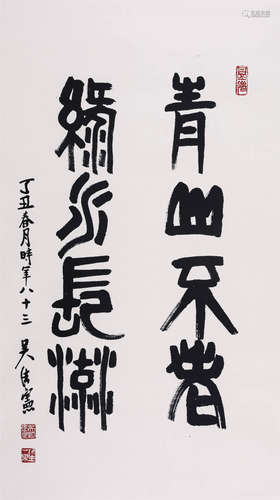 青山不老
綠水長流
丁丑春月時年八十三 吴作憲